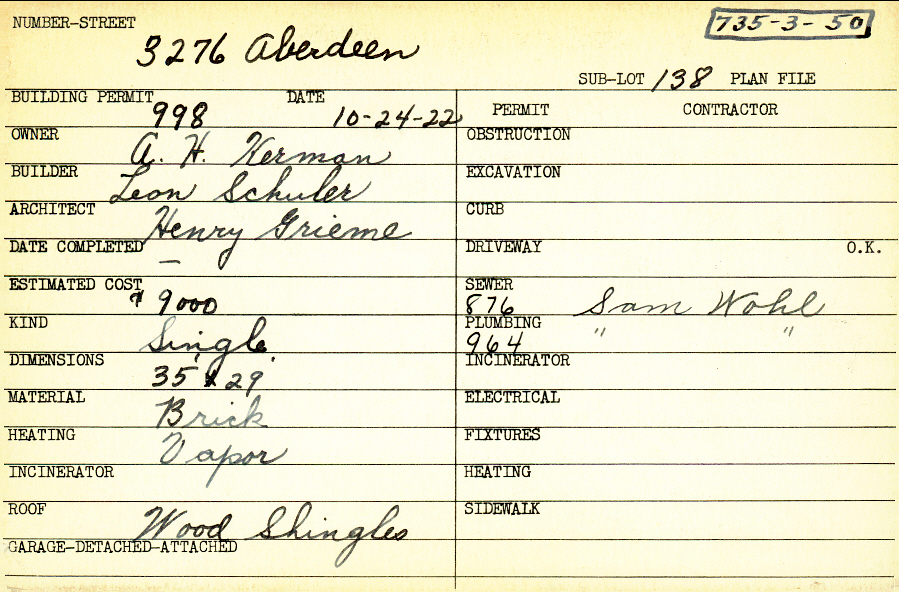 NUMBER-STREET
735-3-50
3276 Aberdeen
SUB-LOT 138 PLAN FILE
BUILDING PERMIT 998 DATE 10-24-22
PERMIT CONTRACTOR
OWNER A. H. Kerman
OBSTRUCTION
BUILDER Leon Schuler
EXCAVATION
ARCHITECT Henry Grieme
CURB
DATE COMPLETED —
DRIVEWAY O.K.
ESTIMATED COST $9000
SEWER 876 Sam Wohl
KIND Single
PLUMBING 964 " "
DIMENSIONS 35' x 29'
INCINERATOR
MATERIAL Brick
ELECTRICAL
HEATING Vapor
FIXTURES
INCINERATOR
HEATING
ROOF Wood Shingles
SIDEWALK
GARAGE-DETACHED-ATTACHED